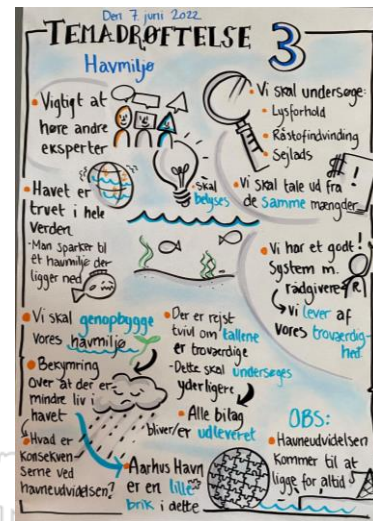 Den 7. juni 2022
TEMADRØFTELSE 3
Havmiljø
• Vigtigt at
høre andre
eksperter
• Vi skal undersøge:
• Lysforhold
• Råstofindvinding
• Sejlads
• Havet er
truet i hele
Verden
- Man sparker til
et havmiljø der
ligger ned
• Skal
belyses
• Vi skal tale ud fra
de samme mængder
• Vi har et godt
System m.
rådgivere
R.
↳ Vi lever af
vores troværdig-
hed
• Vi skal genopbygge
vores havmiljø
• Bekymring
over at der er
mindre liv i
havet
• Der er rejst
tvivl om tallene
er troværdige
- Dette skal undersøges
yderligere
• Alle bilag
bliver/er udleveret
• Hvad er
konsekven-
serne ved
havneudvidelsen?
• Aarhus Havn
er en lille
brik i dette
OBS:
• Havneudvidelsen
kommer til at
ligge for altid